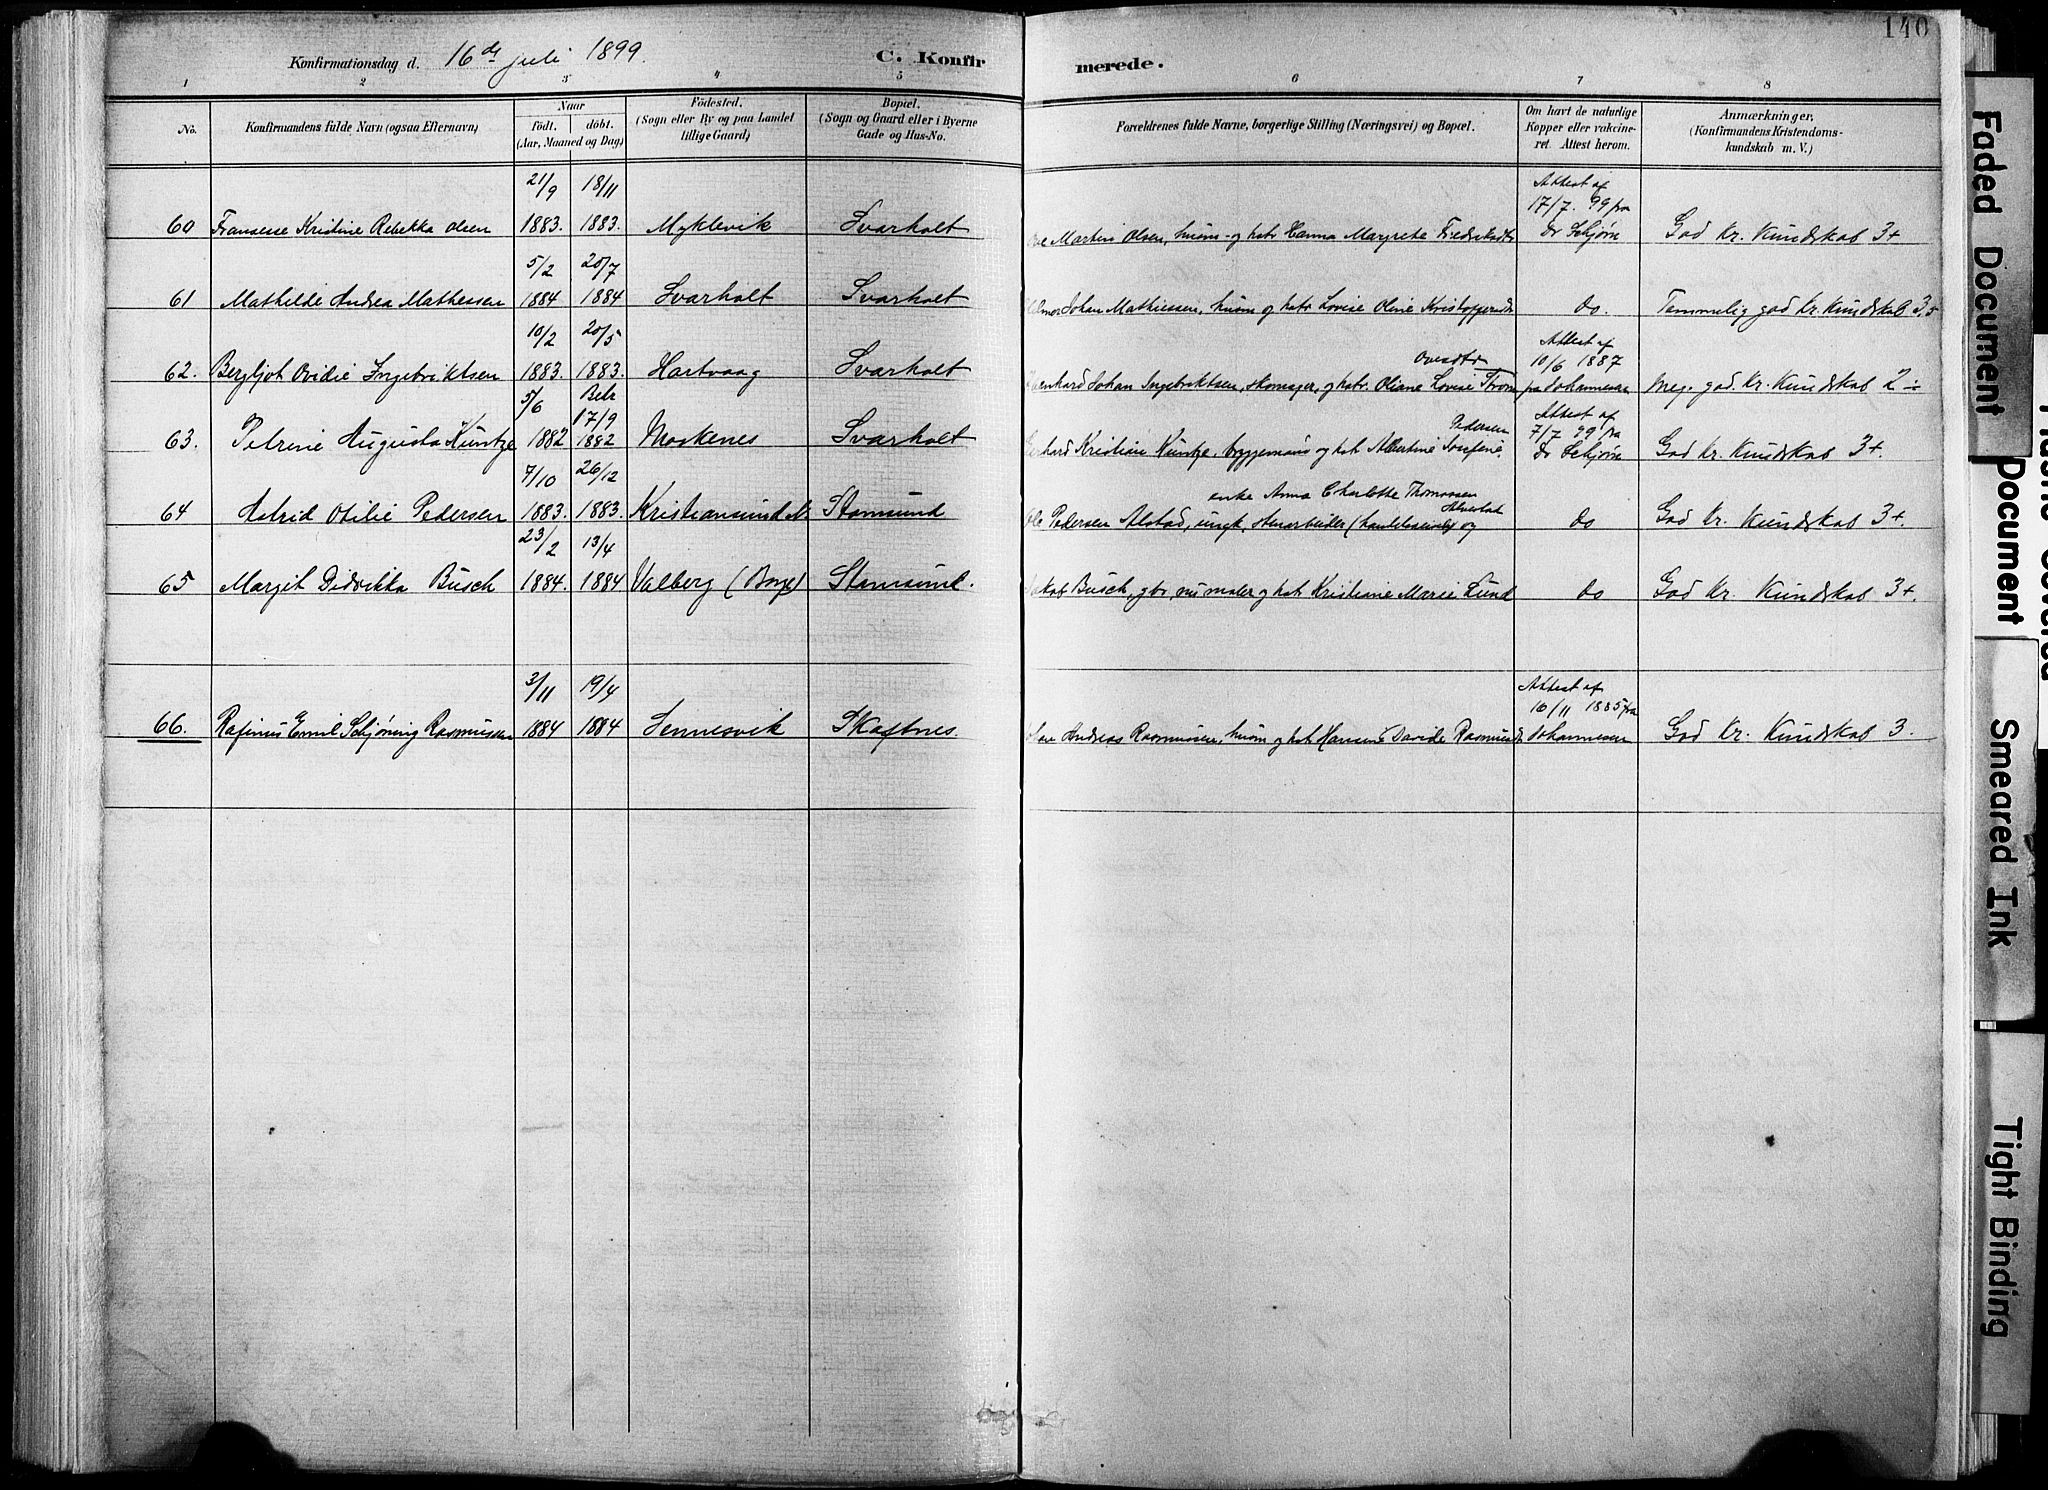 140
Konfirmationsdag d. 16de juli 1899. C. Konfirmerede.
1 2 3 4 5 6 7 8
No. Konfirmandens fulde Navn (ogsaa Efternavn) Naar født. døbt. (Aar, Maaned og Dag) Fødested. (Sogn eller By og paa Landet tillige Gaard) Bopæl. (Sogn og Gaard eller i Byerne Gade og Hus-No. Forældrenes fulde Navne, borgerlige Stilling (Næringsvei) og Bopæl. Om havt de naturlige Kopper eller vakcineret. Attest herom. Anmærkninger. (Konfirmandens Kristendomskundskab m. V.)
21/9 18/11 Attest af 17/7. 99 fra
60 Fransesse Kristine Rebekka Olsen 1883. 1883. Myklevik Svarholt Martin Olsen, husm. og hstr Hanna Margrete Fredriksdtr Dr Schjøn God Kr. Kundskab 3+
5/2 20/7
61 Mathilde Andrea Mathessen 1884 1884 Svarholt Svarholt Johan Mathiessen, husm og hstr Lovise Oline Kristoffersdtr do. Temmelig god Kr. Kundskab 3,5
10/2 20/5 Ovesdtr Attest af 10/6 1887
62. Bergljot Ovidie Ingebriktsen 1883. 1883. Hartvaag Svarholt Johan Ingebriktsen, skomager, og hstr. Oliane Lovise Strøm fra Johannesen Meg. god. Kr. Kundskab 2 ÷
5/6 Bekr 17/9 Pedersen Attest af 7/7 99 fra
63. Petrine Augusta Küntze 1882 1882 Moskenes Svarholt Gerhard Kristian Küntze, byggemans og hst Albertine Josefine Dr Schjøn God Kr. Kundskab 3+.
7/10 26/12 enke Anna Charlotte Thomassen
64 Astrid Otilie Pedersen 1883. 1883. Kristiansund N. Stamsund Ole Pedersen Alstad, ungk, stenarbeider og do God Kr. Kundskab 3+.
23/2 13/4
65 Margit Didrikka Busch 1884. 1884 Valberg (Borge) Stamsund. Jakob Busch, gbr, nu maler og hst Kristiane Marie Lund do God Kr. Kundskab 3+.
3/11 19/4 Attest af 10/11 1885 fra
66. Rafinus Emil Schjøning Rasmussen 1884 1884 Sennesvik Skaftnes. Andreas Rasmussen, husm og hst Hansine Davide Rasmusdtr Johannesen God Kr. Kundskab 3.
Faded Document
Document
Smeared Ink
Tight Binding